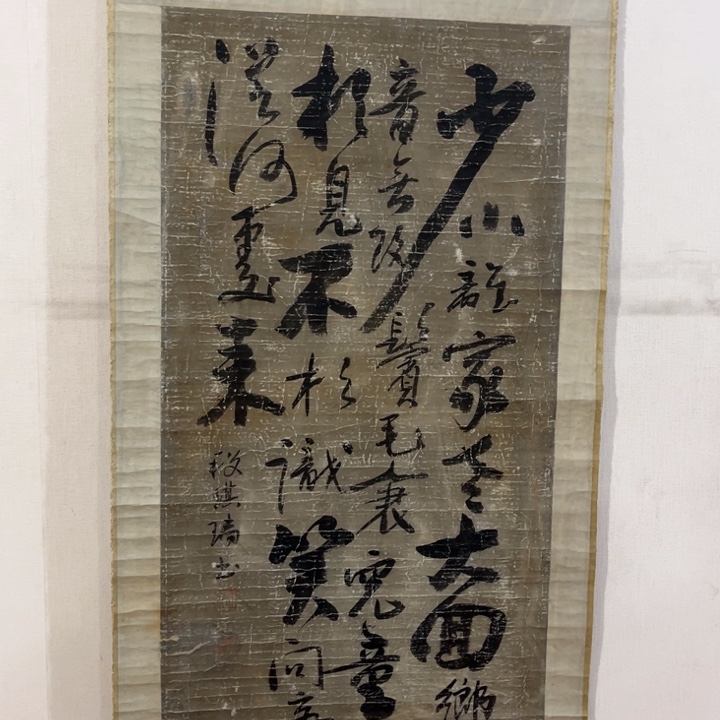 少小離家老大回鄉
音無改鬢毛衰兒童
相見不相識笑問客
從何處來
段祺瑞书